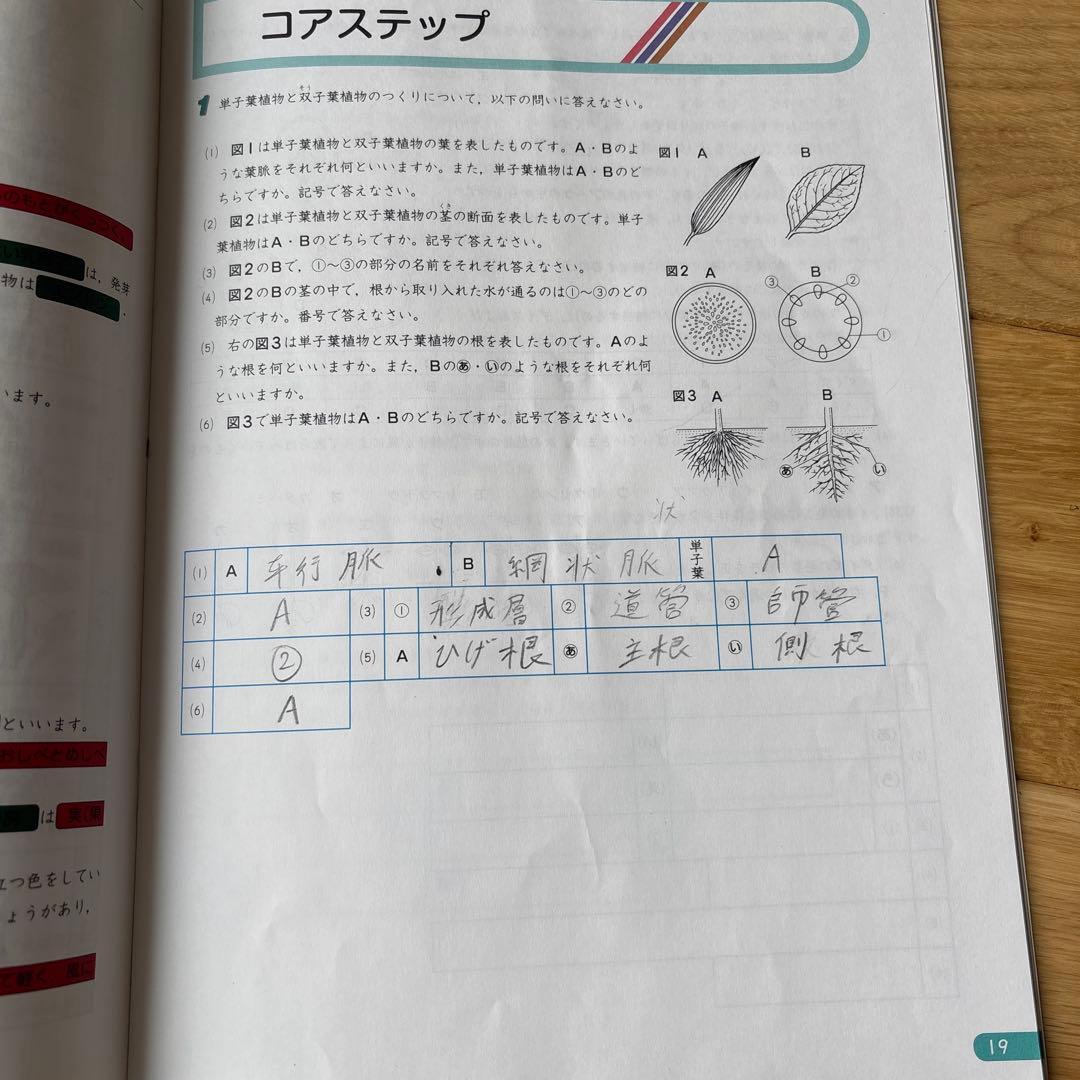 コアステップ
1 単子葉植物と双子葉植物のつくりについて，以下の問いに答えなさい。
(1) 図1は単子葉植物と双子葉植物の葉を表したものです。A・Bのよ
うな葉脈をそれぞれ何といいますか。また，単子葉植物はA・Bのど
ちらですか。記号で答えなさい。
(2) 図2は単子葉植物と双子葉植物の茎の断面を表したものです。単子
葉植物はA・Bのどちらですか。記号で答えなさい。
(3) 図2のBで，①〜③の部分の名前をそれぞれ答えなさい。
(4) 図2のBの茎の中で，根から取り入れた水が通るのは①〜③のどの
部分ですか。番号で答えなさい。
(5) 右の図3は単子葉植物と双子葉植物の根を表したものです。Aのよ
うな根を何といいますか。また，Bのあ・いのような根をそれぞれ何
といいますか。
(6) 図3で単子葉植物はA・Bのどちらですか。記号で答えなさい。
図1 A B
図2 A B
③ ②
①
図3 A B
あ い
状
(1) A 行脈 B 網状脈 単子葉 A
(2) A (3) ① 形成層 ② 道管 ③ 師管
(4) ② (5) A ひげ根 あ 主根 い 側根
(6) A
は，発芽
物は
います。
といいます。
おしべとめしべ
は 実(果
立つ色をしてい
ょうがあり，
19